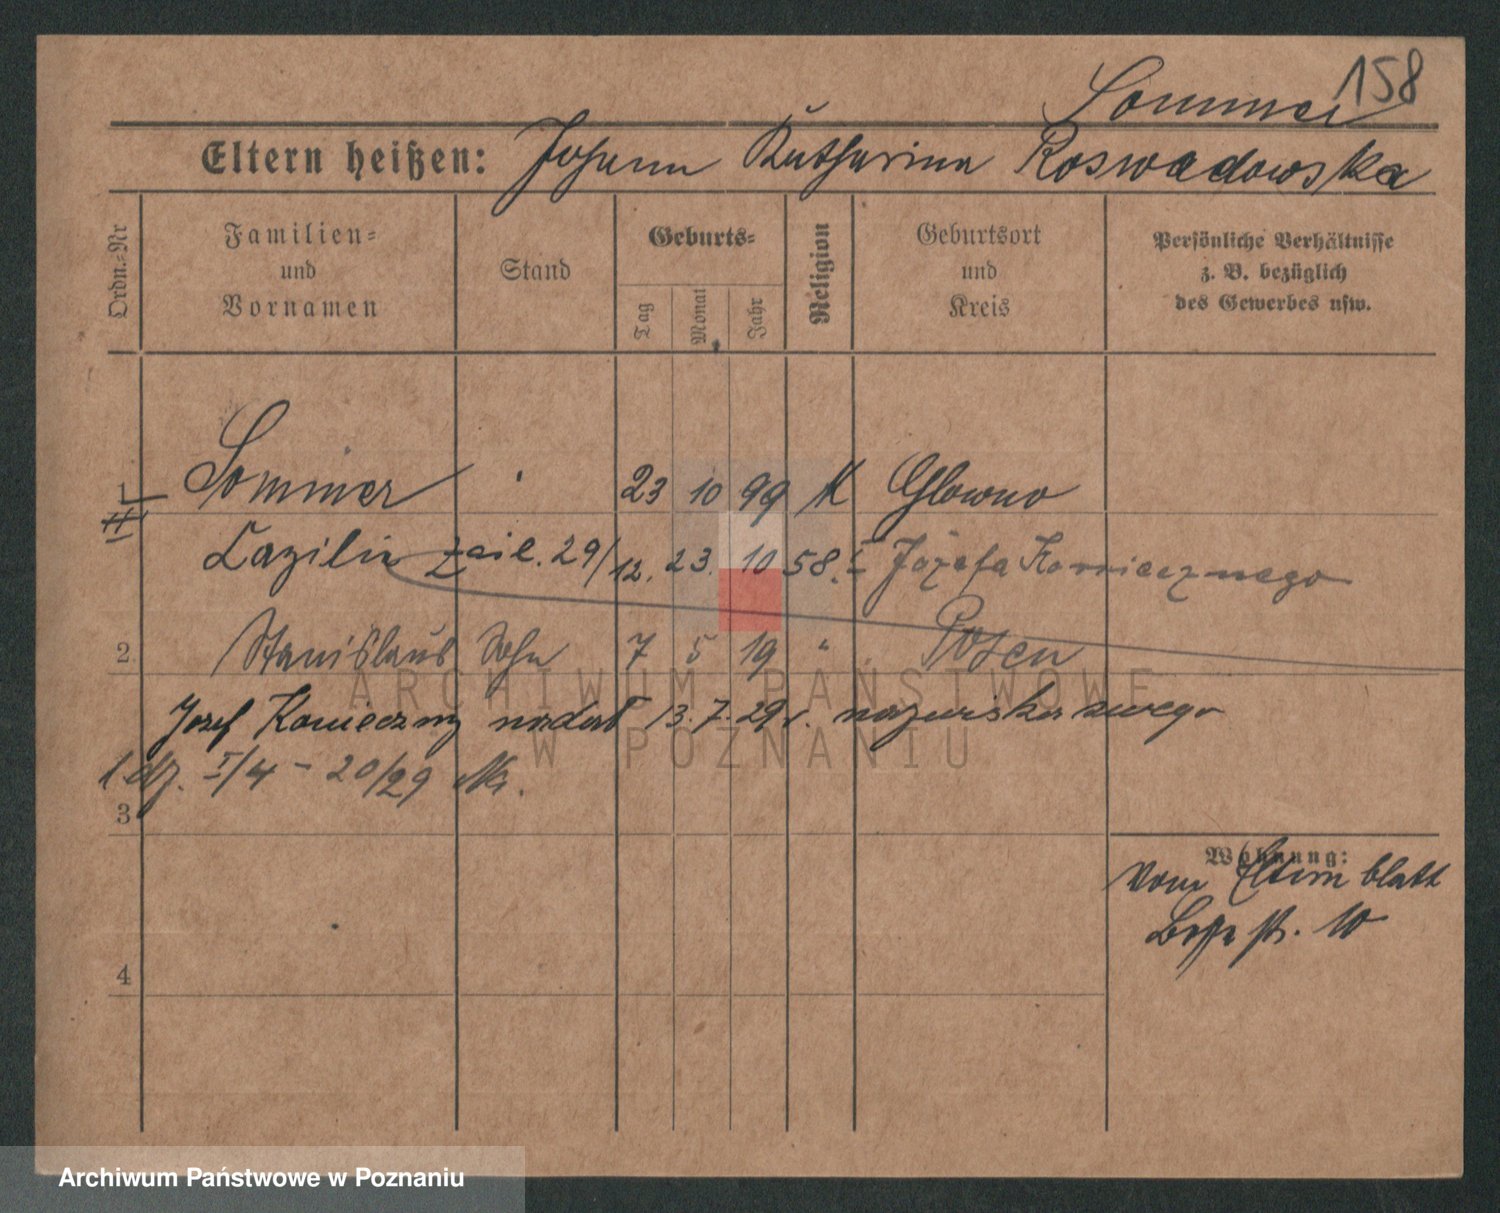 158
Sommer
Eltern heißen: Johann Katharina Roswadowska
Ordn.-Nr
Familien-
und
Vornamen
Stand
Geburts-
Tag
Monat
Jahr
Religion
Geburtsort
und
Kreis
Persönliche Verhältnisse
z. B. bezüglich
des Gewerbes usw.
1 Sommer 23 10 99 K Glowno
Cazilie 29/12. 23. 10 58. Józefa Koniecznego
2 Stanislaus Sohn 7 5 19 " Posen
Jozef Konieczny nadał 13.7.29 r. nazwisko swego
l. dz. I/4 - 20/29
3
Wohnung:
Vom Elternblatt
10
4
ARCHIWUM PAŃSTWOWE
W POZNANIU
Archiwum Państwowe w Poznaniu